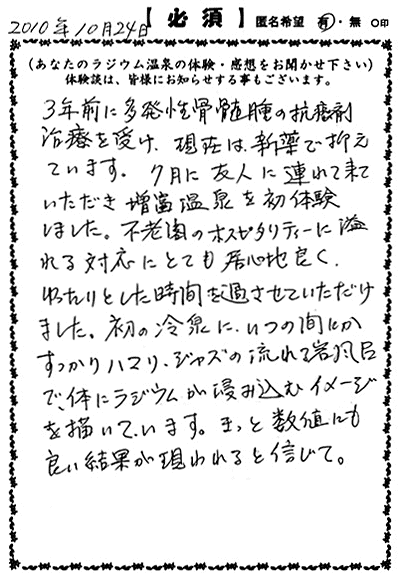 2010年10月24日
【必須】 匿名希望 有・無 ○印
(あなたのラジウム温泉の体験・感想をお聞かせ下さい)
体験談は、皆様にお知らせする事もございます。
3年前に多発性骨髄腫の抗癌剤
治療を受け、現在は、新薬で抑え
ています。7月に友人に連れて来て
いただき増富温泉を初体験
しました。不老閣のホスピタリティーに溢
れる対応にとても居心地良く、
ゆったりとした時間を過させていただけ
ました。初の冷泉に、いつの間にか
すっかりハマリ、ジャズの流れる岩風呂
で、体にラジウムが浸み込むイメージ
を描いています。きっと数値にも
良い結果が現われると信じて。